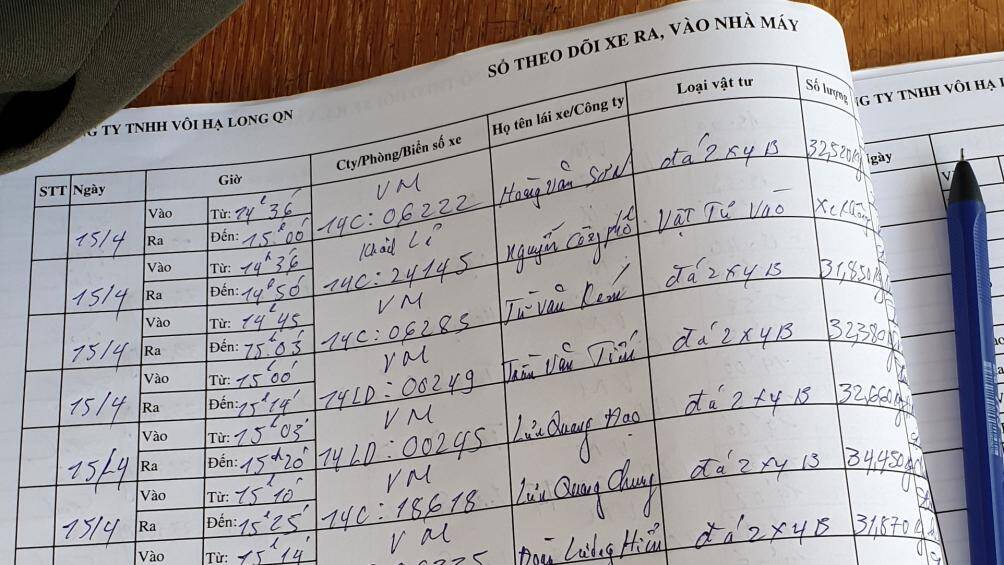 SỔ THEO DÕI XE RA, VÀO NHÀ MÁY
G TY TNHH VÔI HẠ LONG QN
STT Ngày Giờ Cty/Phòng/Biển số xe Họ tên lái xe/Công ty Loại vật tư Số lượng
15/4 Vào Từ: 14h36' VM Hoàng Văn Sơn đá 2x4B 32,520kg
Ra Đến: 15h00' 14C: 06222
15/4 Vào Từ: 14h36' Khải Lê Nguyễn Công Vật Tư Vào xe
Ra Đến: 14h50' 14C: 24145
15/4 Vào Từ: 14h45' VM Từ Văn đá 2x4B 31,850
Ra Đến: 15h03' 14C: 06285
15/4 Vào Từ: 15h00' VM Trần Văn Tiến đá 2x4B 32,380
Ra Đến: 15h14' 14LD: 00249
15/4 Vào Từ: 15h03' VM Lưu Quang Đạo đá 2x4B 32,660
Ra Đến: 15h20' 14LD: 00245
15/4 Vào Từ: 15h10' VM Lưu Quang Chung đá 2x4B 34,450
Ra Đến: 15h25' 14C: 18618
Vào Từ: 15h14' VM Đoàn Lương Hiển đá 2x4B 31,870
G TY TNHH VÔI HẠ L
Ngày